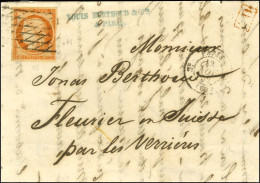 LOUIS BERTHOUD & Cie
A PARIS
P.D.
Monsieur
Jonas Berthoud
Fleurier en Suisse
par les Verrières